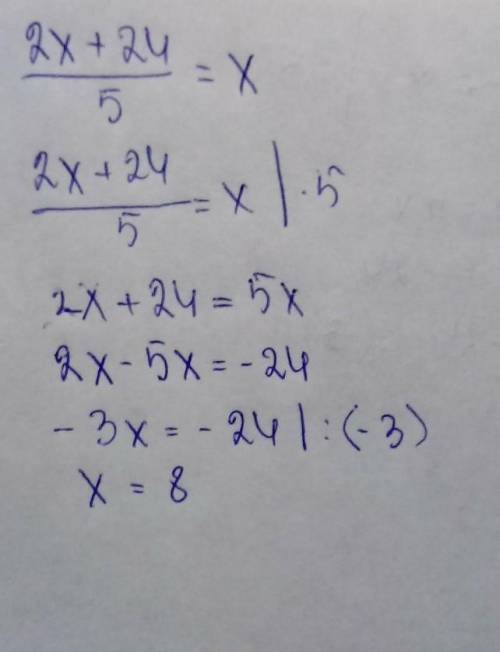 2x + 24
5
= x
2x + 24
5
= x | · 5
2x + 24 = 5x
2x - 5x = - 24
- 3x = - 24 | : (- 3)
x = 8